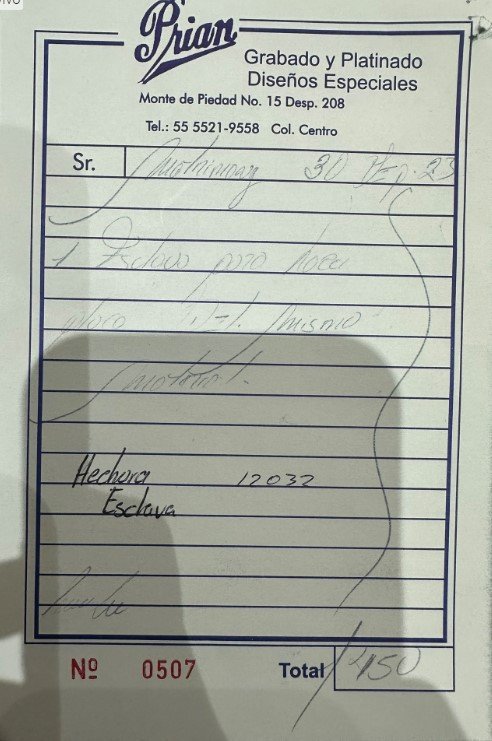 Prian
Grabado y Platinado
Diseños Especiales
Monte de Piedad No. 15 Desp. 208
Tel.: 55 5521-9558 Col. Centro
Sr. 30 Sep. 23
1 Esclava para hacer
placa del mismo
material.
Hechura 12032
Esclava
Nº 0507 Total 1450